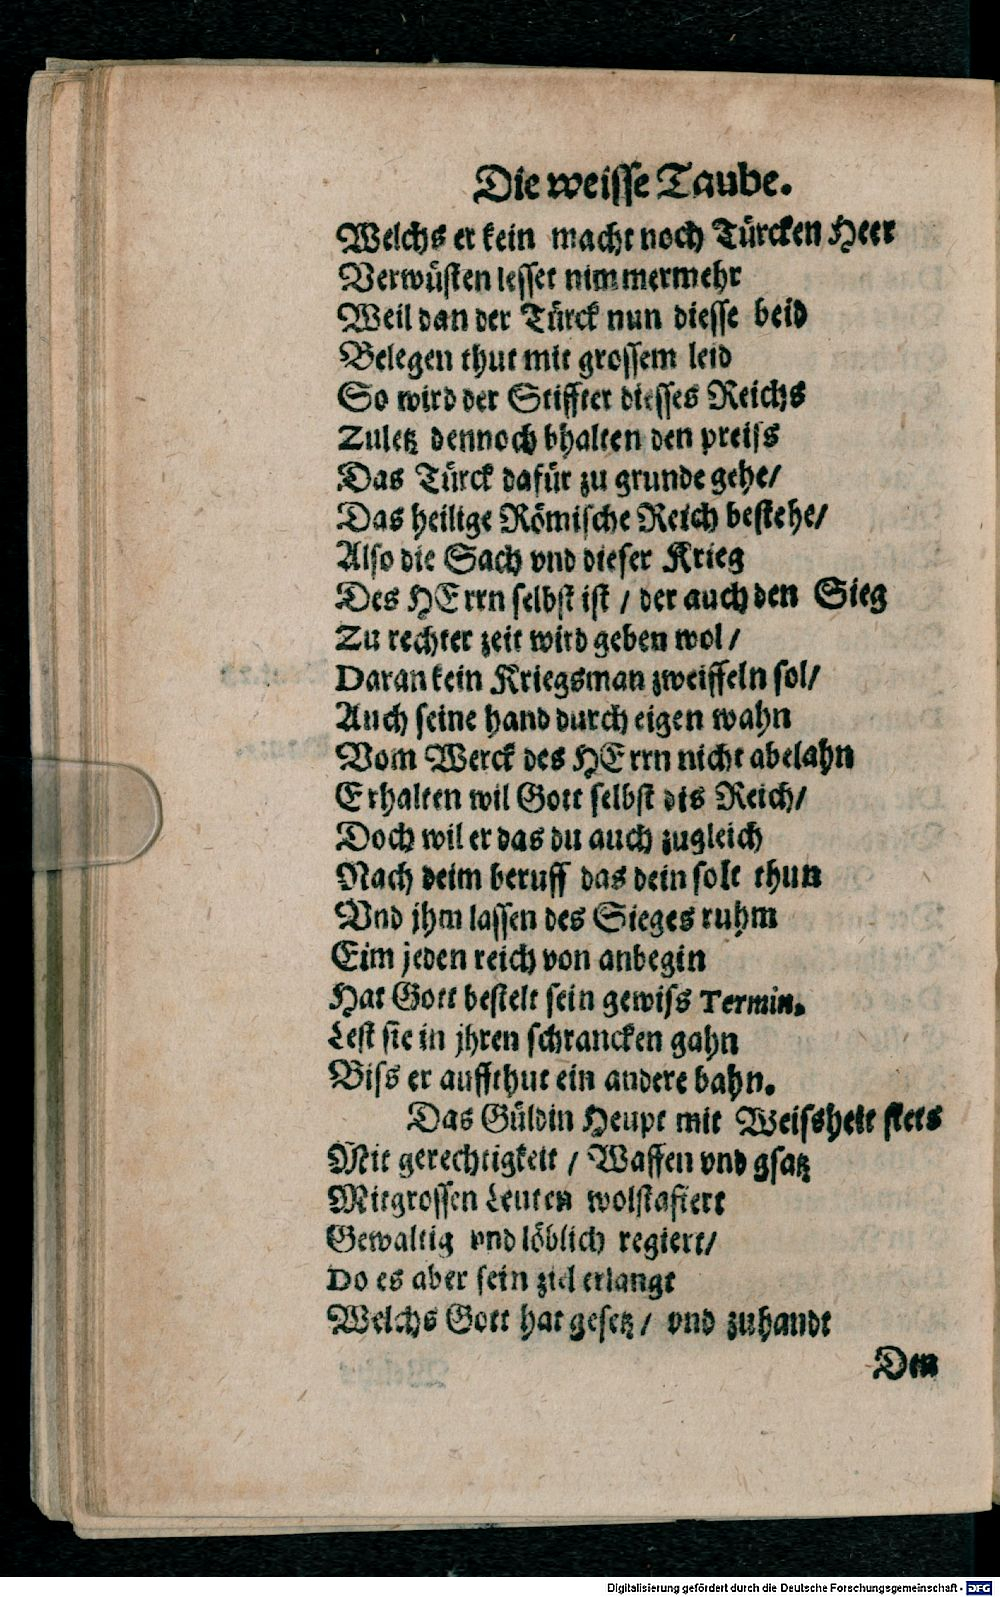 Die weisse Taube.
Welchs er kein macht noch Türcken Heer
Verwüsten lesset nimmermehr
Weil dan der Türck nun diesse beid
Belegen thut mit grossem leid
So wird der Stiffter diesses Reichs
Zuletz dennoch bhalten den preiss
Das Türck dafür zu grunde gehe/
Das heilige Römische Reich bestehe/
Also die Sach vnd dieser Krieg
Des HErrn selbst ist / der auch den Sieg
Zu rechter zeit wird geben wol /
Daran kein Kriegsman zweiffeln sol/
Auch seine hand durch eigen wahn
Vom Werck des HErrn nicht abelahn
Erhalten wil Gott selbst dis Reich/
Doch wil er das du auch zugleich
Nach deim beruff das dein solt thun
Vnd jhm lassen des Sieges ruhm
Eim jeden reich von anbegin
Hat Gott bestelt sein gewiss Termin.
Lest sie in jhren schrancken gahn
Biss er auffthut ein andere bahn.
Das Güldin Heupt mit Weissheit stets
Mit gerechtigkeit / Waffen vnd gsatz
Mit grossen Leuten wolstafiert
Gewaltig vnd löblich regiert/
Do es aber sein ziel erlangt
Welchs Gott hat gesetz / vnd zuhandt
Den
Digitalisierung gefördert durch die Deutsche Forschungsgemeinschaft - DFG